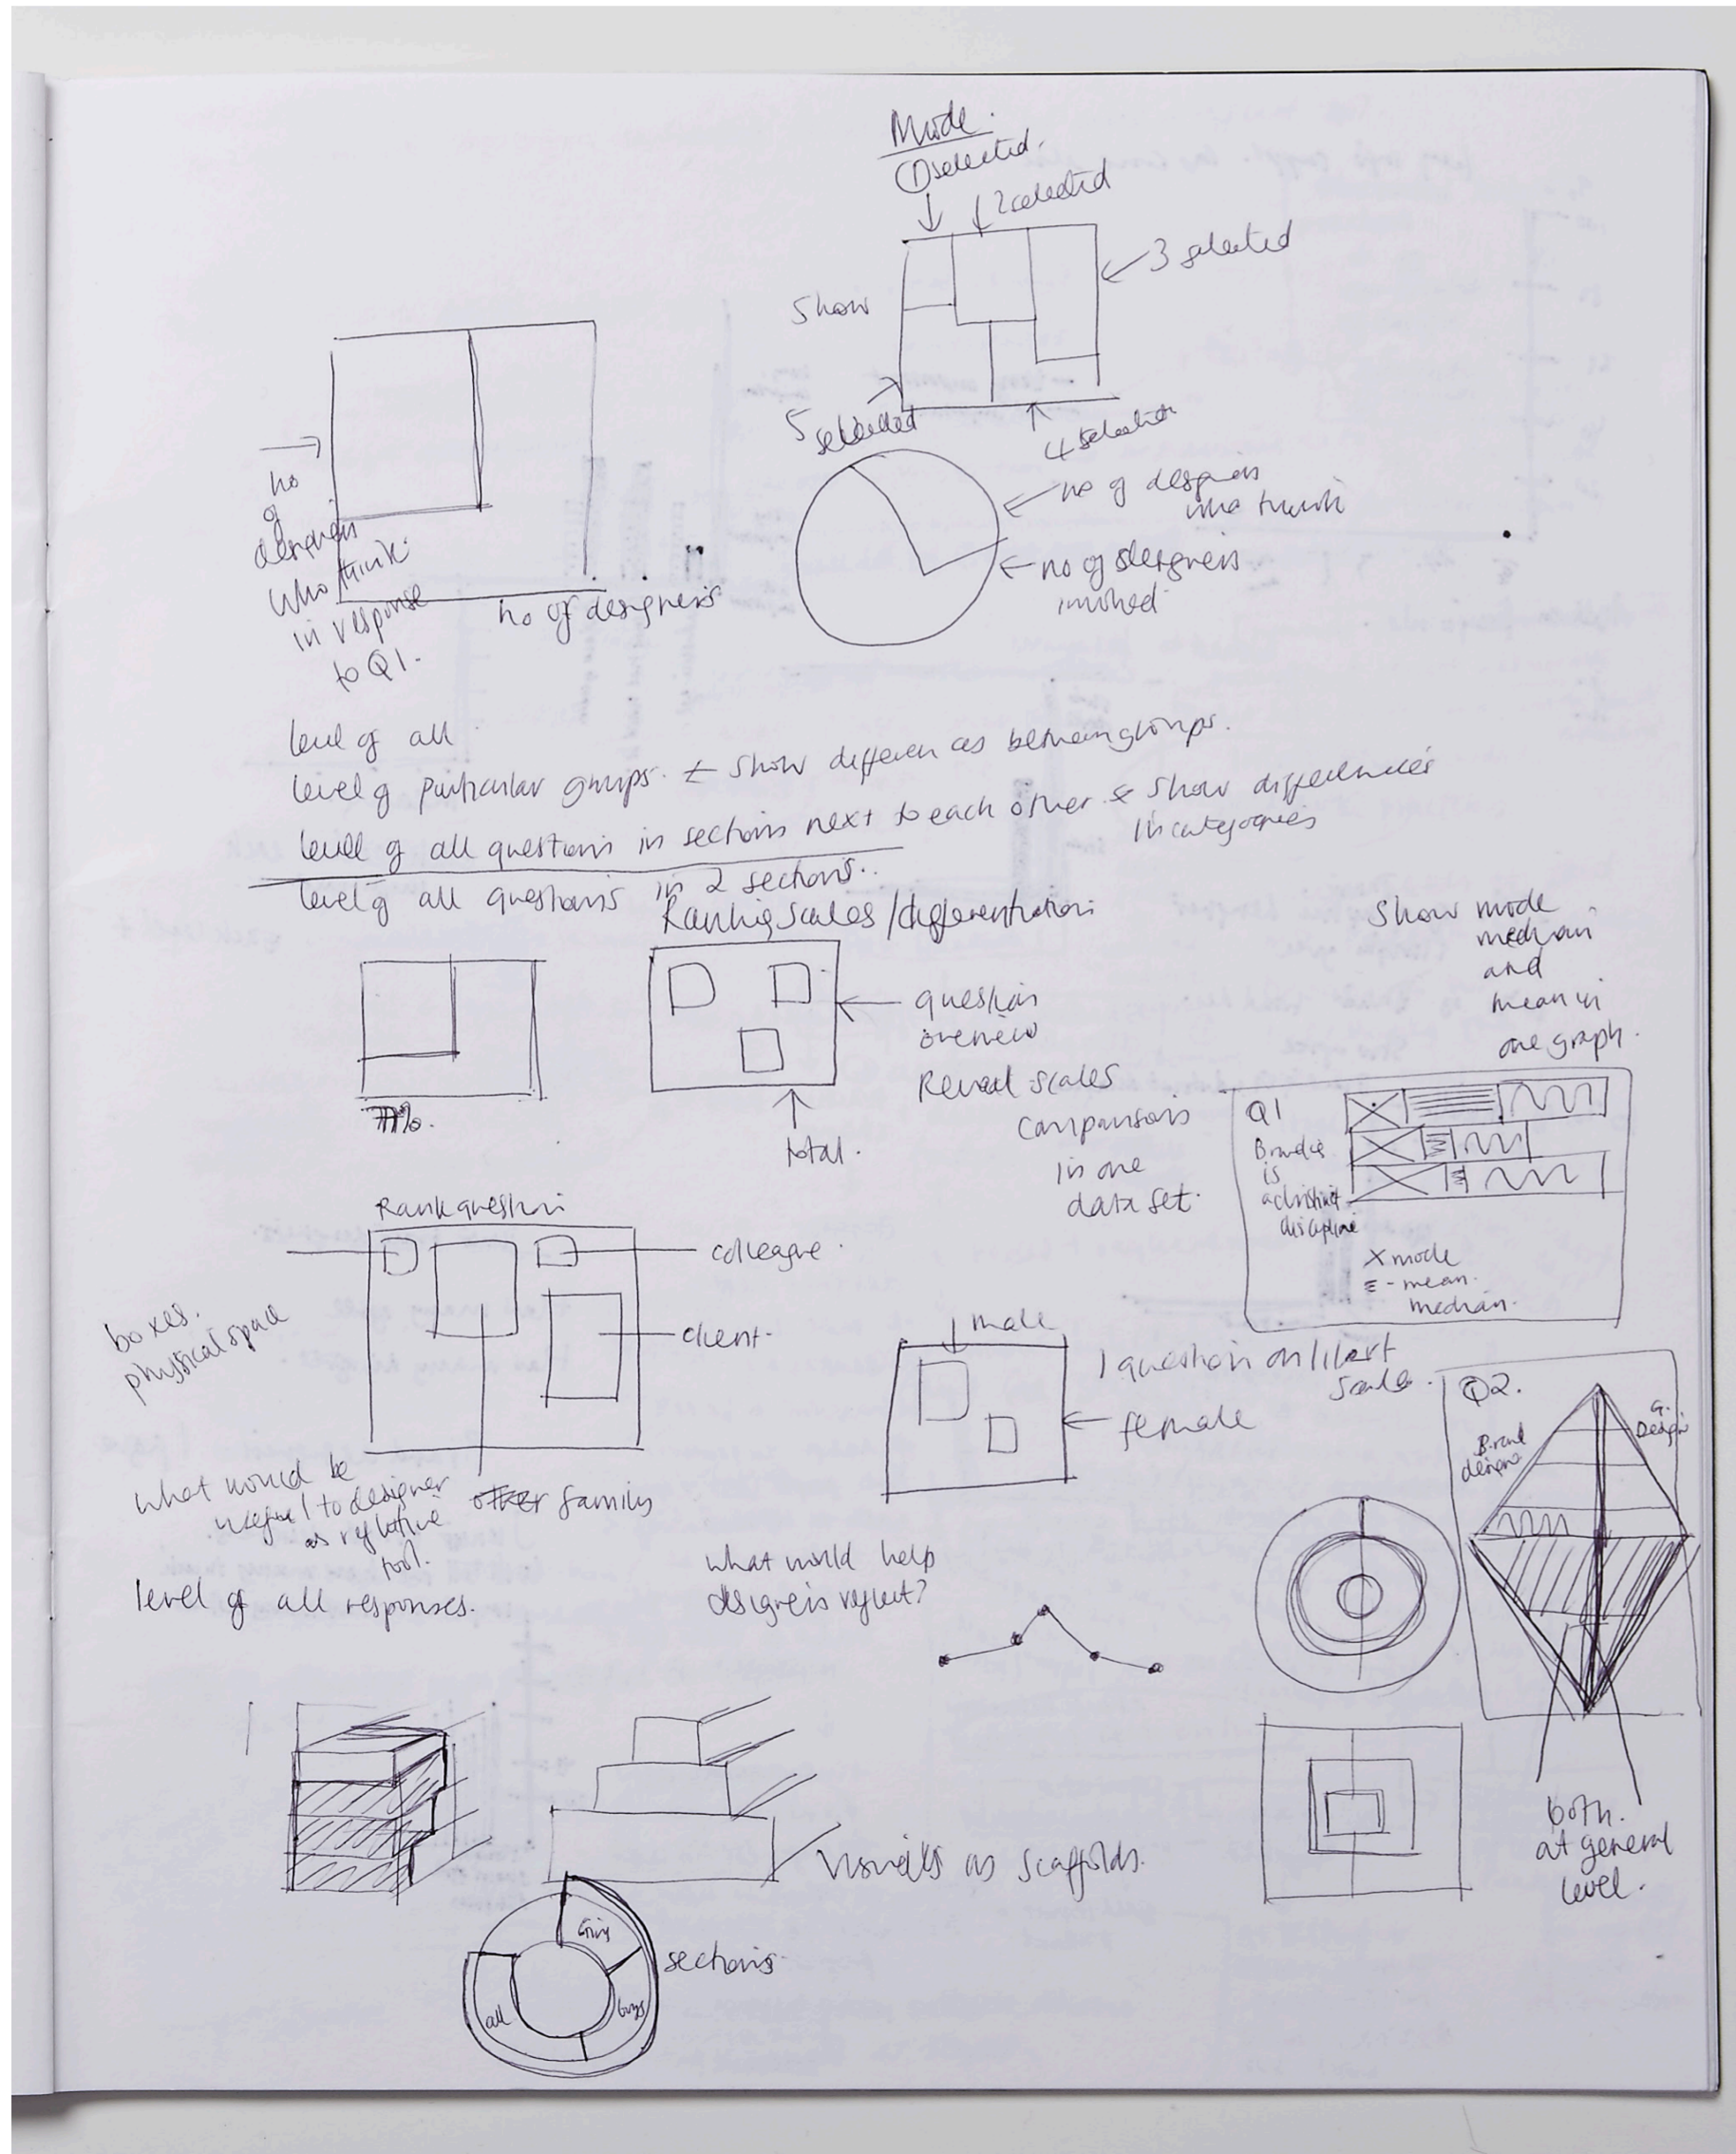 Mode.
① selected.
2 selected
3 selected
Show
5 selected
4 selected
no
of
designers
who think
in response
to Q1.
no of designers
no of designers
who think
no of designers
involved
level of all.
level of particular groups. ← Show differences between groups.
level of all questions in sections next to each other & Show differences
in categories
level of all questions in 2 sections..
Ranking scales / differentiation
question
overview
Reveal scales
comparisons
in one
data set.
total.
Show mode
median
and
mean in
one graph.
Q1
is
a distinct
discipline
X mode
≡ - mean.
median.
Rank question
colleague.
client.
family
boxes.
physical space
what would be
useful to designer
as reflective
tool.
level of all responses.
male
female
1 question on likert
scale.
what would help
designers reflect?
Q2.
Brand
designs
G.
Design
both.
at general
level.
Visuals as scaffolds.
sections.
all